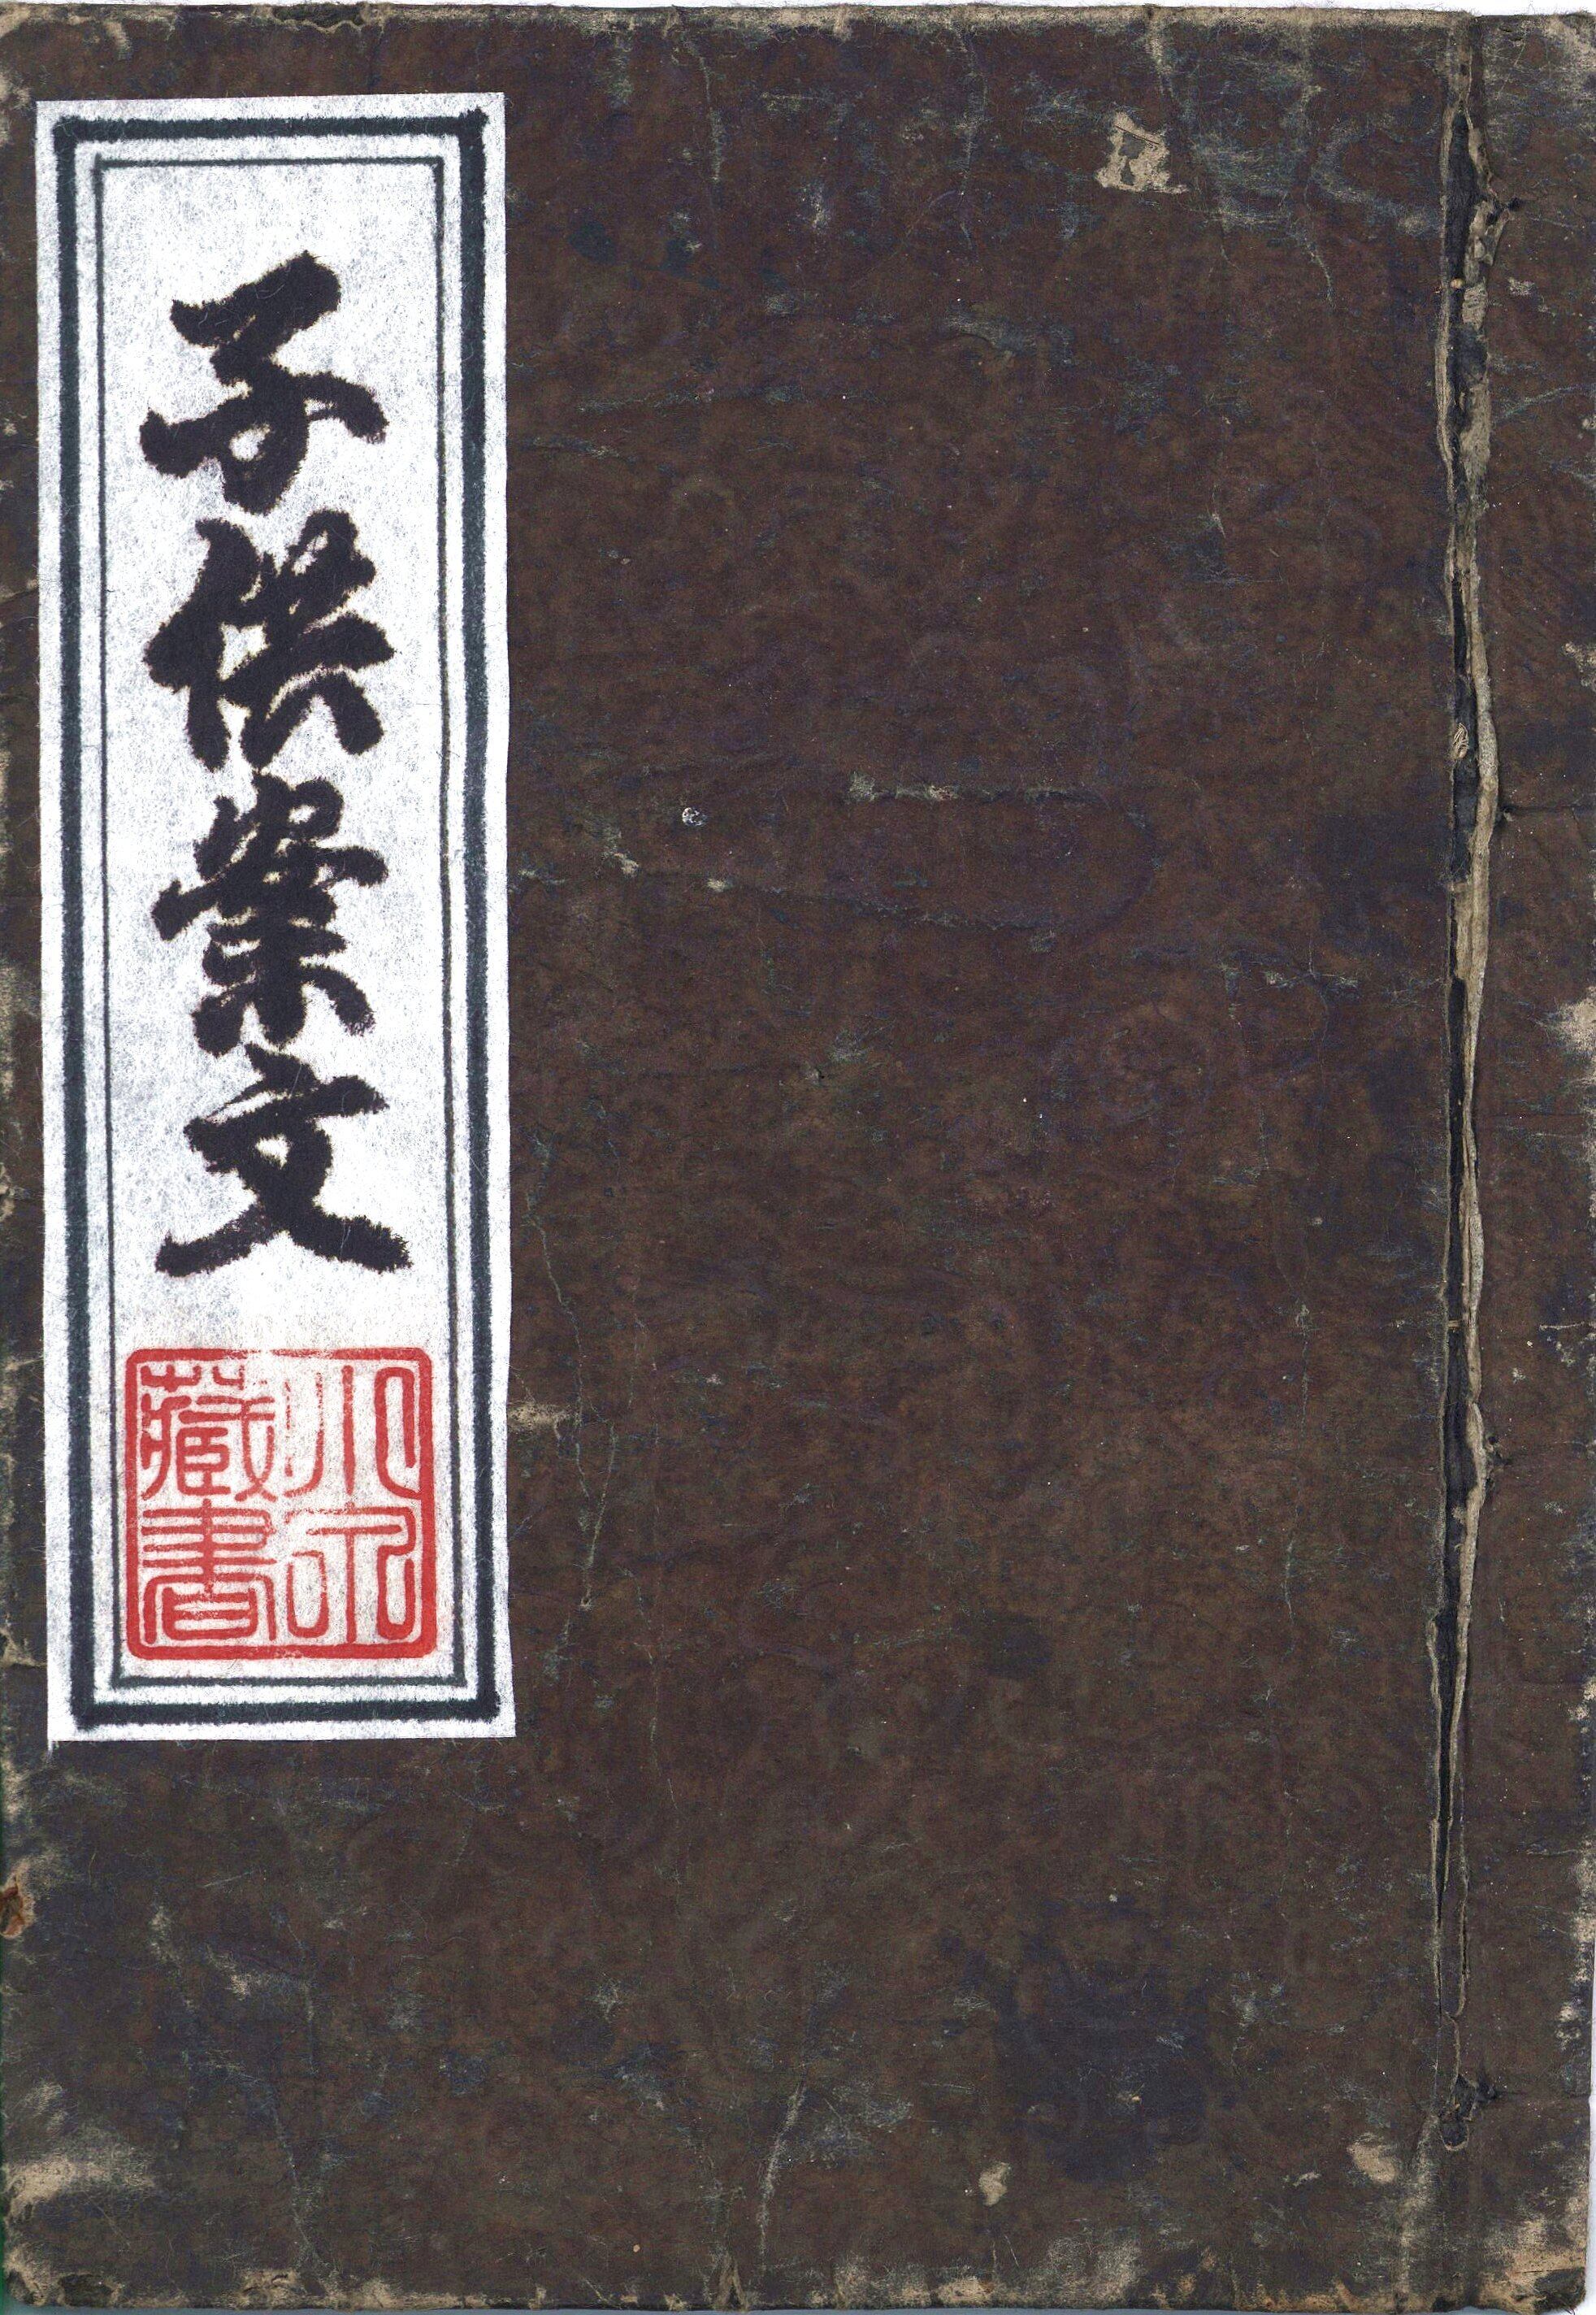 子供案文
小泉
藏書